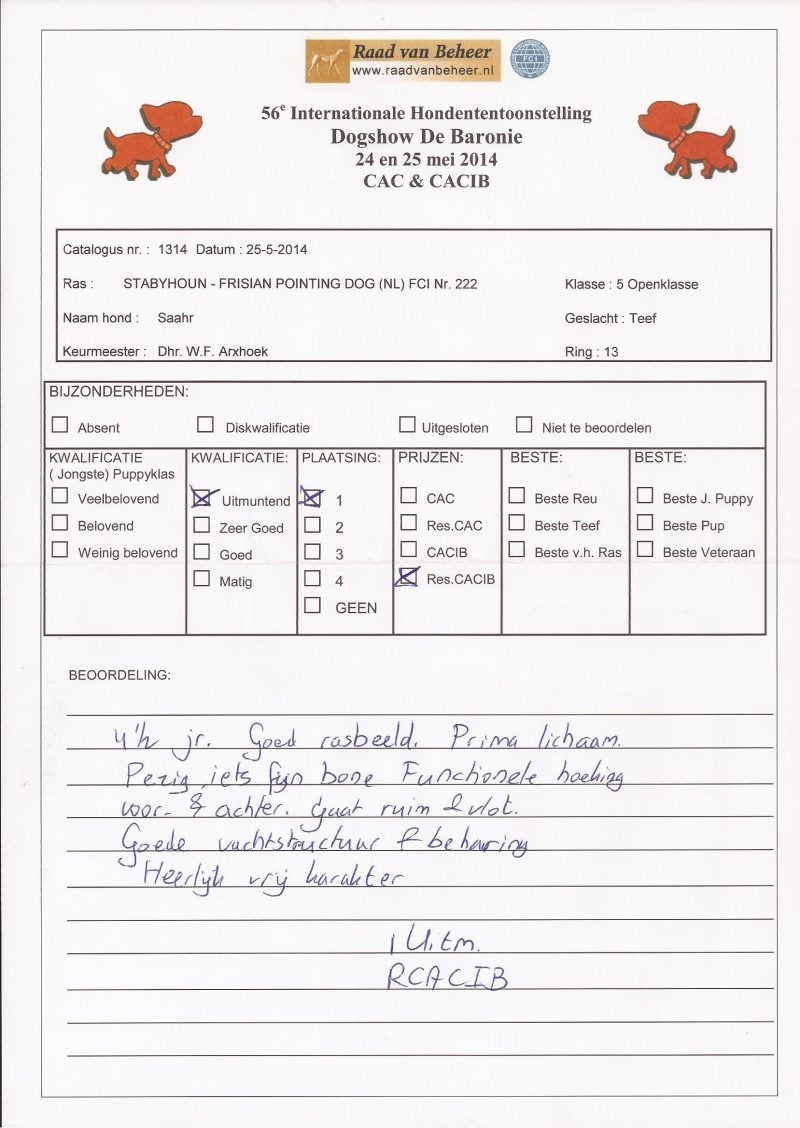 Raad van Beheer
www.raadvanbeheer.nl
FCI
56e Internationale Hondententoonstelling
Dogshow De Baronie
24 en 25 mei 2014
CAC & CACIB
Catalogus nr. : 1314 Datum : 25-5-2014
Ras : STABYHOUN - FRISIAN POINTING DOG (NL) FCI Nr. 222 Klasse : 5 Openklasse
Naam hond : Saahr Geslacht : Teef
Keurmeester : Dhr. W.F. Arxhoek Ring : 13
BIJZONDERHEDEN:
Absent Diskwalificatie Uitgesloten Niet te beoordelen
KWALIFICATIE
( Jongste) Puppyklas
Veelbelovend
Belovend
Weinig belovend
KWALIFICATIE:
Uitmuntend
Zeer Goed
Goed
Matig
PLAATSING:
1
2
3
4
GEEN
PRIJZEN:
CAC
Res.CAC
CACIB
Res.CACIB
BESTE:
Beste Reu
Beste Teef
Beste v.h. Ras
BESTE:
Beste J. Puppy
Beste Pup
Beste Veteraan
BEOORDELING:
4½ jr. Goed rasbeeld. Prima lichaam.
Pezig, iets fijn bone Functionele hoeking
voor- & achter. Gaat ruim & vlot.
Goede vachtstructuur & beharing
Heerlijk vrij karakter
1 Uitm.
RCACIB